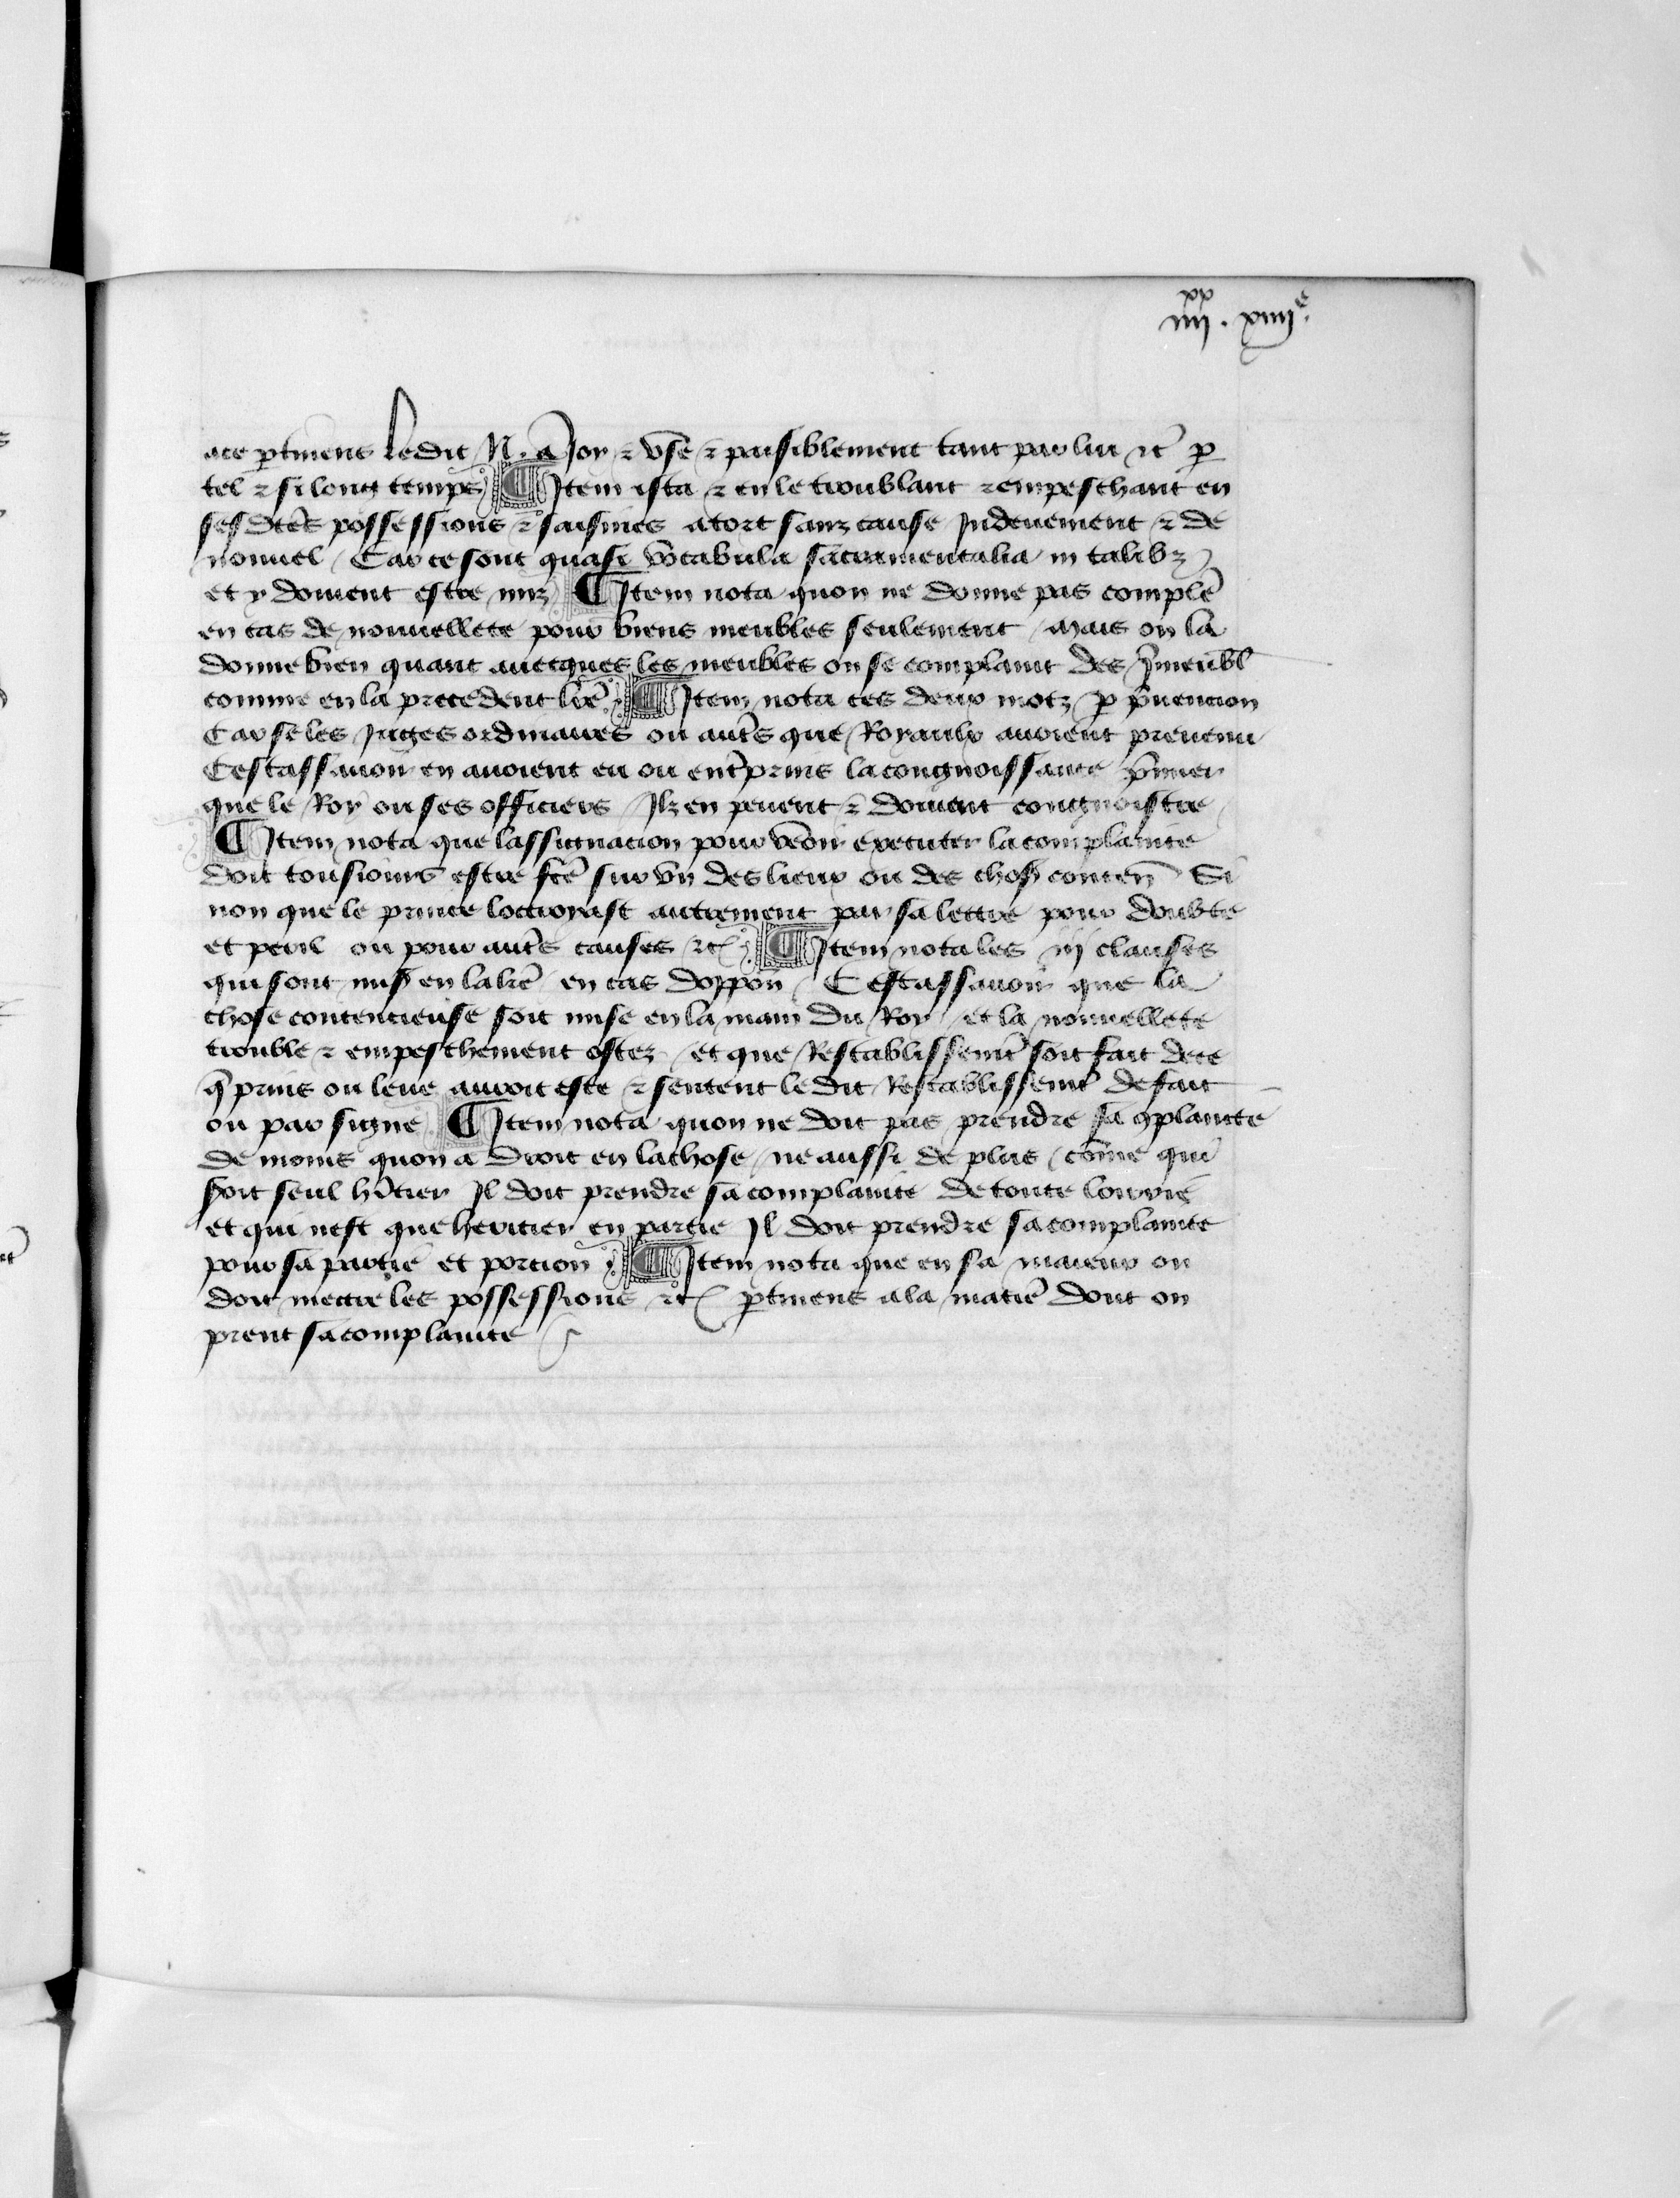 xx
iiii . xiiii e.
ace ptinens ledit N. a Joy ⁊ use ⁊ paisiblement tant par lui ⁊c p
tel ⁊ si long temps ¶ Item ista ⁊ en le troublant ⁊ empeschant en
ses dtes possessions ⁊ saisines a tort sanz cause Indeuement ⁊ de
nouuel / Car ce sont quasi vocabula sacramentalia in talibz
et y doiuent estre miz ¶ Item nota quon ne donne pas comple
en cas de nouuellete pour biens meubles seulement / Mais on la
donne bien quant auecques les meubles on se complaint des Jmeubl
comme en la precedent lre ¶ Item nota ces deux motz p puencion
Car se les Juges ordinaires ou autes que Royaulx auoient preuenu
Cestassauoir en auoient eu ou entprins la congnoissance pmier
que le Roy ou ses officiers Ilz en peuent ⁊ doiuent congnoistre
¶ Item nota que lassignacion pour veoir executer la complainte
doit tousiours estre fce sur vn des lieux ou des chos conten Si
non que le prince loctroyast autrement par sa lettre pour doubte
et peril ou pour autes causes ⁊c ¶ Item nota les iij clauses
qui sont mis en la lre en cas doppon / Cestassauoir que la
chose contencieuse soit mise en la main du Roy / et la nouuellete
trouble ⁊ empeschement ostez / et que Restablissemt soit fait de ce
q prins ou leue auroit este ⁊ sentent le dit Restablissemt de fait
ou par signe ¶ Item nota quon ne doit pas prendre sa 9plainte
de moins quon a droit en la chose / ne aussi de plus / come qui
soit seul hitier Il doit prendre sa complainte de toute
et qui nest que heritier en partie Il doit prendre sa complainte
pour sa partie et porcion ¶ Item nota que en sa maieur on
doit mectre les possessions ⁊c ptinens a la matie dont on
prent sa complainte